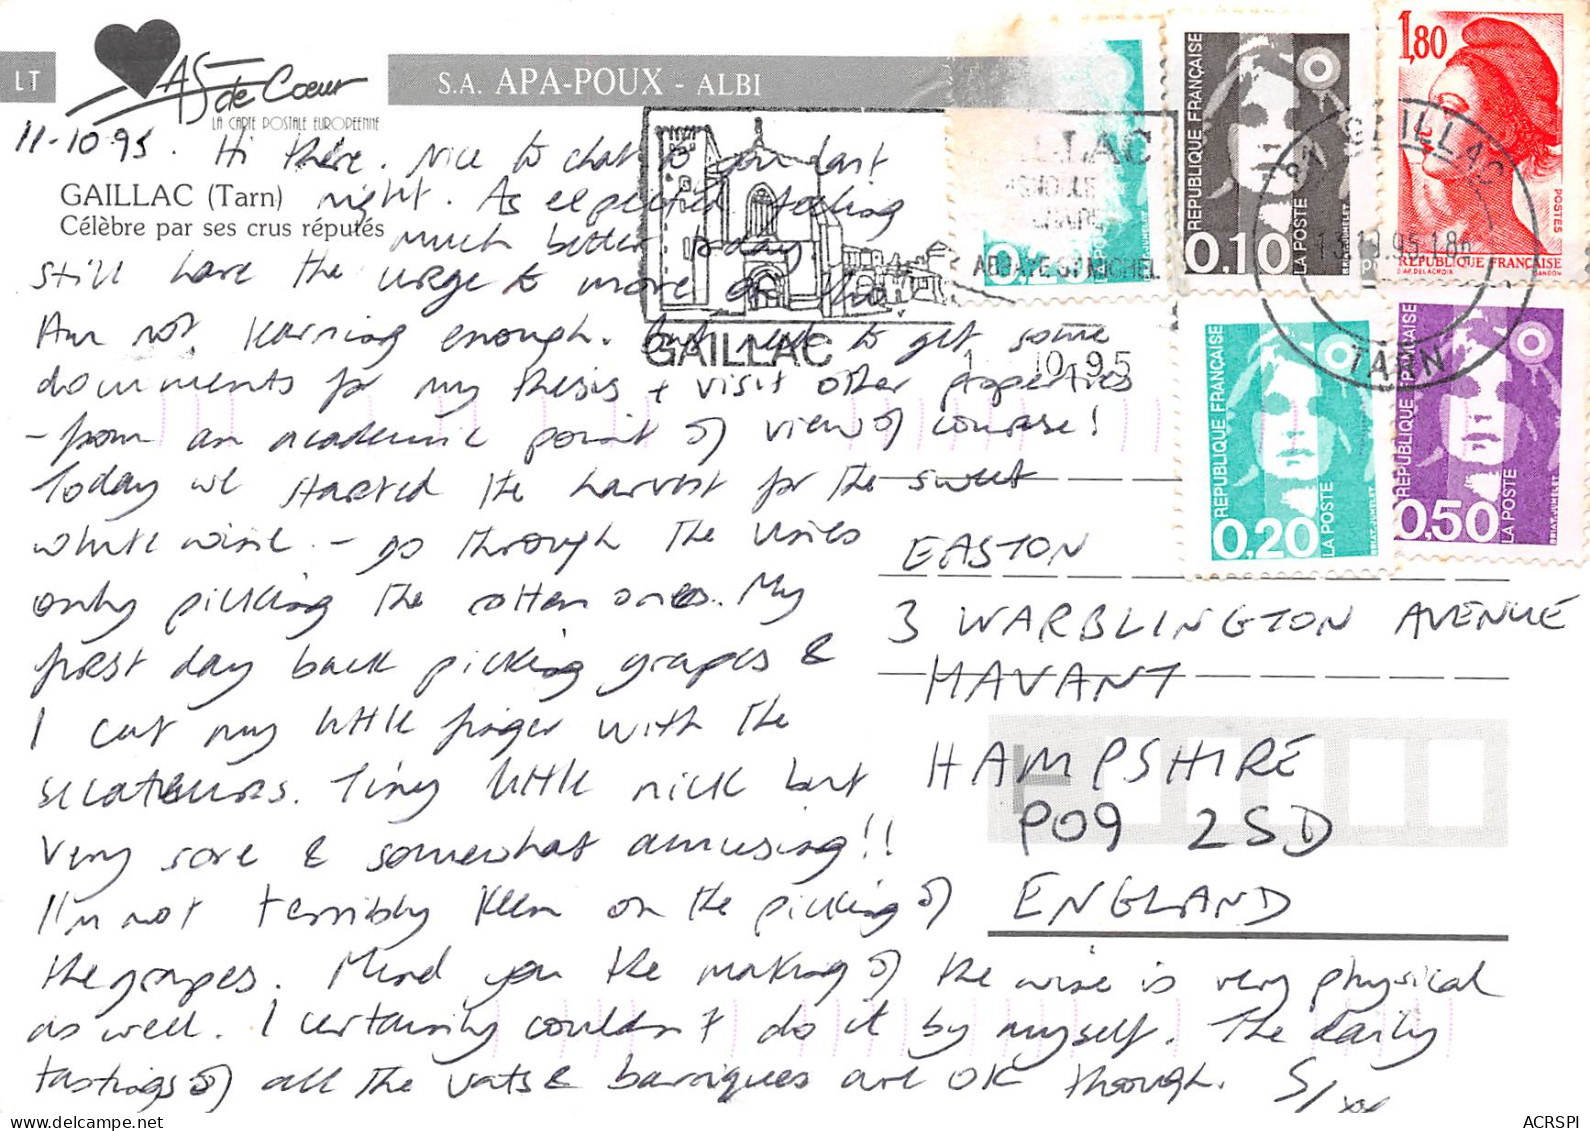 LT
As de Cœur
LA CARTE POSTALE EUROPEENNE
S.A. APA-POUX - ALBI
GAILLAC (Tarn)
Célèbre par ses crus réputés
11-10 95. Hi there. Nice to chat to you last
night. As expected feeling
much better today
still have the urge to move on tho
Am not learning enough. but need to get some
documents for my thesis + visit other properties
- from an academic point of view of course!
Today we started the harvest for the sweet
white wine. - go through the vines
only picking the rotten ones. My
first day back picking grapes &
I cut my little finger with the
secateurs. Tiny little nick but
very sore & somewhat amusing!!
I'm not terribly keen on the picking of
the grapes. Mind you the making of the wine is very physical
as well. I certainly couldn't do it by myself. The daily
tastings of all the vats & barriques are OK though. S/xx
EASTON
3 WARBLINGTON AVENUE
HAVANT
HAMPSHIRE
PO9 2SD
ENGLAND
ABBAYE ST MICHEL
GAILLAC
10.95
81 GAILLAC
TARN
REPUBLIQUE FRANÇAISE
0,10
LA POSTE
1,80
POSTES
REPUBLIQUE FRANÇAISE
D'AP. DELACROIX
GANDON
0,20
REPUBLIQUE FRANÇAISE
0,20
LA POSTE
BRIAT-JUMELET
REPUBLIQUE FRANÇAISE
0,50
LA POSTE
BRIAT-JUMELET
www.delcampe.net
ACRSPI